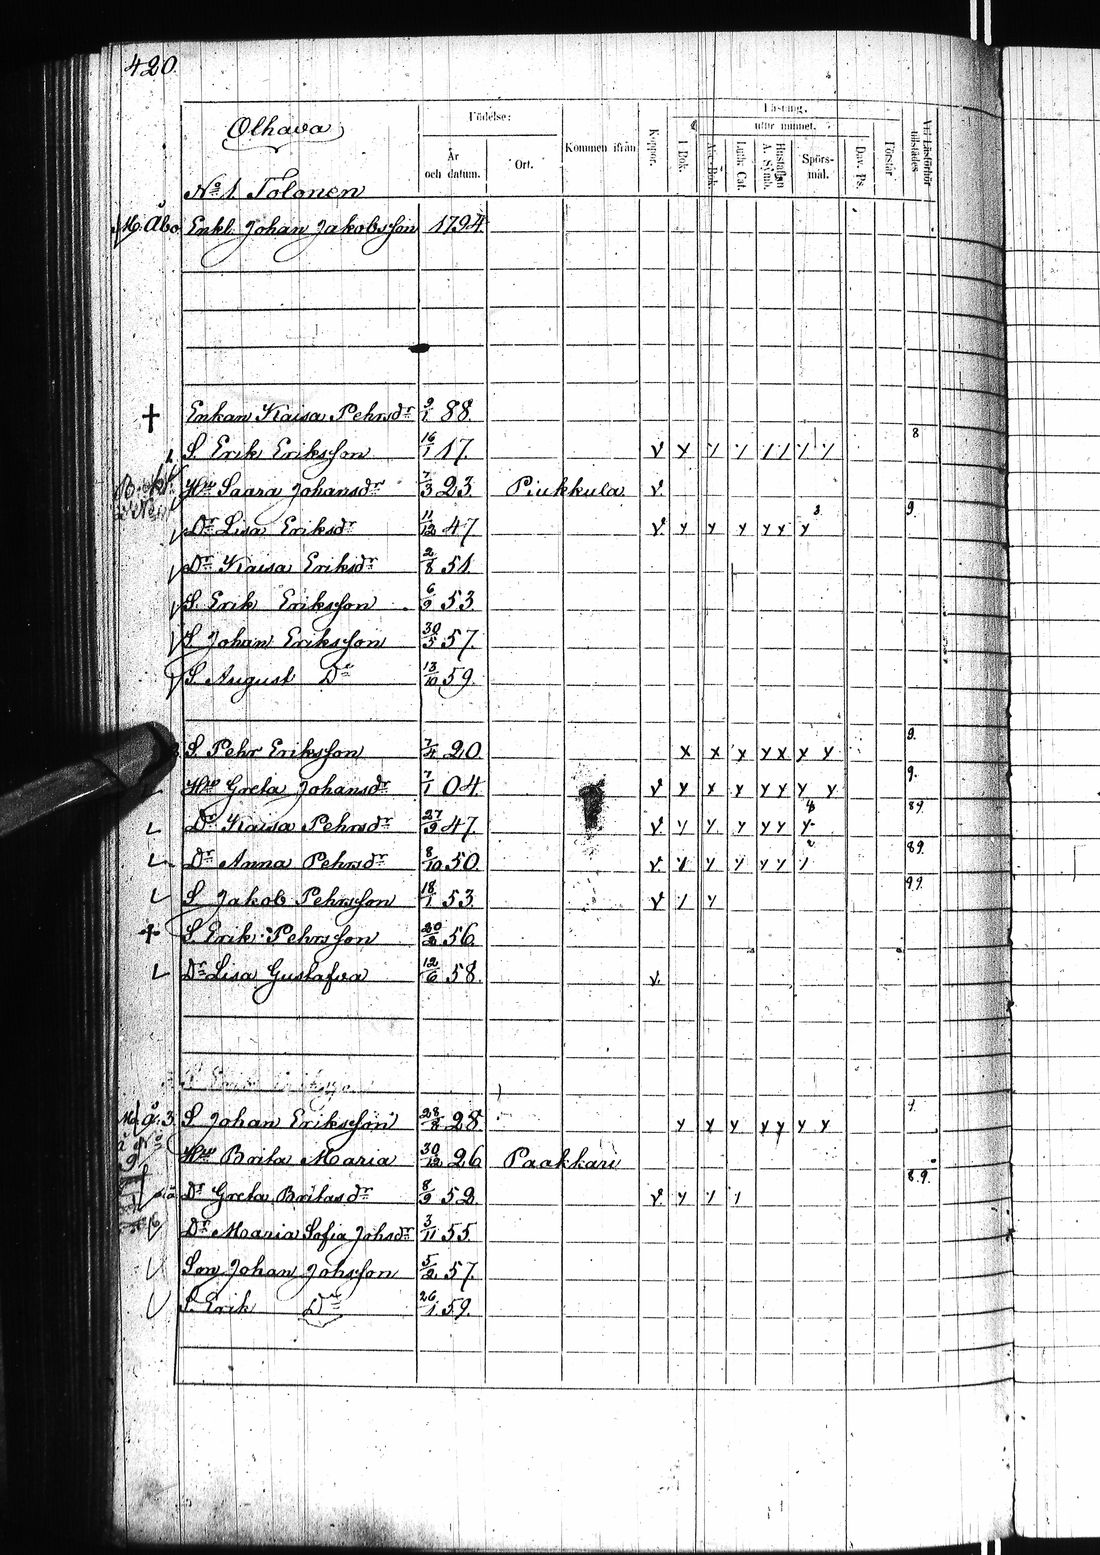 420.
Olhava
No 1. Tolonen
Födelse:
År och datum.
Ort.
Kommen ifrån
Koppor.
Läsning,
I Bok.
utur minnet.
A.b.c. Bok.
Luth. Cat.
Hustaflan A. Symb.
Spörsmål.
Dav. Ps.
Förstår
Vid Läsförhör tillstädes
Åbo Enkl. Johan Jakobsson 1794.
† Enkan Kaisa Pehrsdr 9/1 88.
S. Erik Eriksson 16/1 17. v x / / / / / / 8
Hu Saara Johansdr 7/3 23. Piukkula v.
Dr Lisa Eriksdr 11/12 47 v. y y y y y y 3 9.
Dr Kaisa Eriksdr 2/8 51
S. Erik Eriksson 6/9 53
S. Johan Eriksson 30/5 57.
S. August Do 13/10 59.
S. Pehr Eriksson 7/4 20 x x y y x x y 9.
Hu Greta Johansdr 7/1 04. v y x y y y y y 9.
Dr Kaisa Pehrsdr 27/9 47. v y y. y y y y 8 89
Dr Anna Pehrsdr 8/10 50. v. y y y y y / 2 89.
S. Jakob Pehrsson 18/1 53. v / y 99.
† S. Erik Pehrsson 20/2 56.
Dr Lisa Gustafva 12/6 58. v.
S. Johan Eriksson 28/8 28. y y y y y y y 1.
Hu Brita Maria 30/12 26 Paakkari
Dr Greta Britasdr 8/9 52. v. y / / 8.9.
Dr Maria Sofia Johsdr 3/11 55.
Son Johan Johsson 5/2 57.
S. Erik Do 26/1 59.